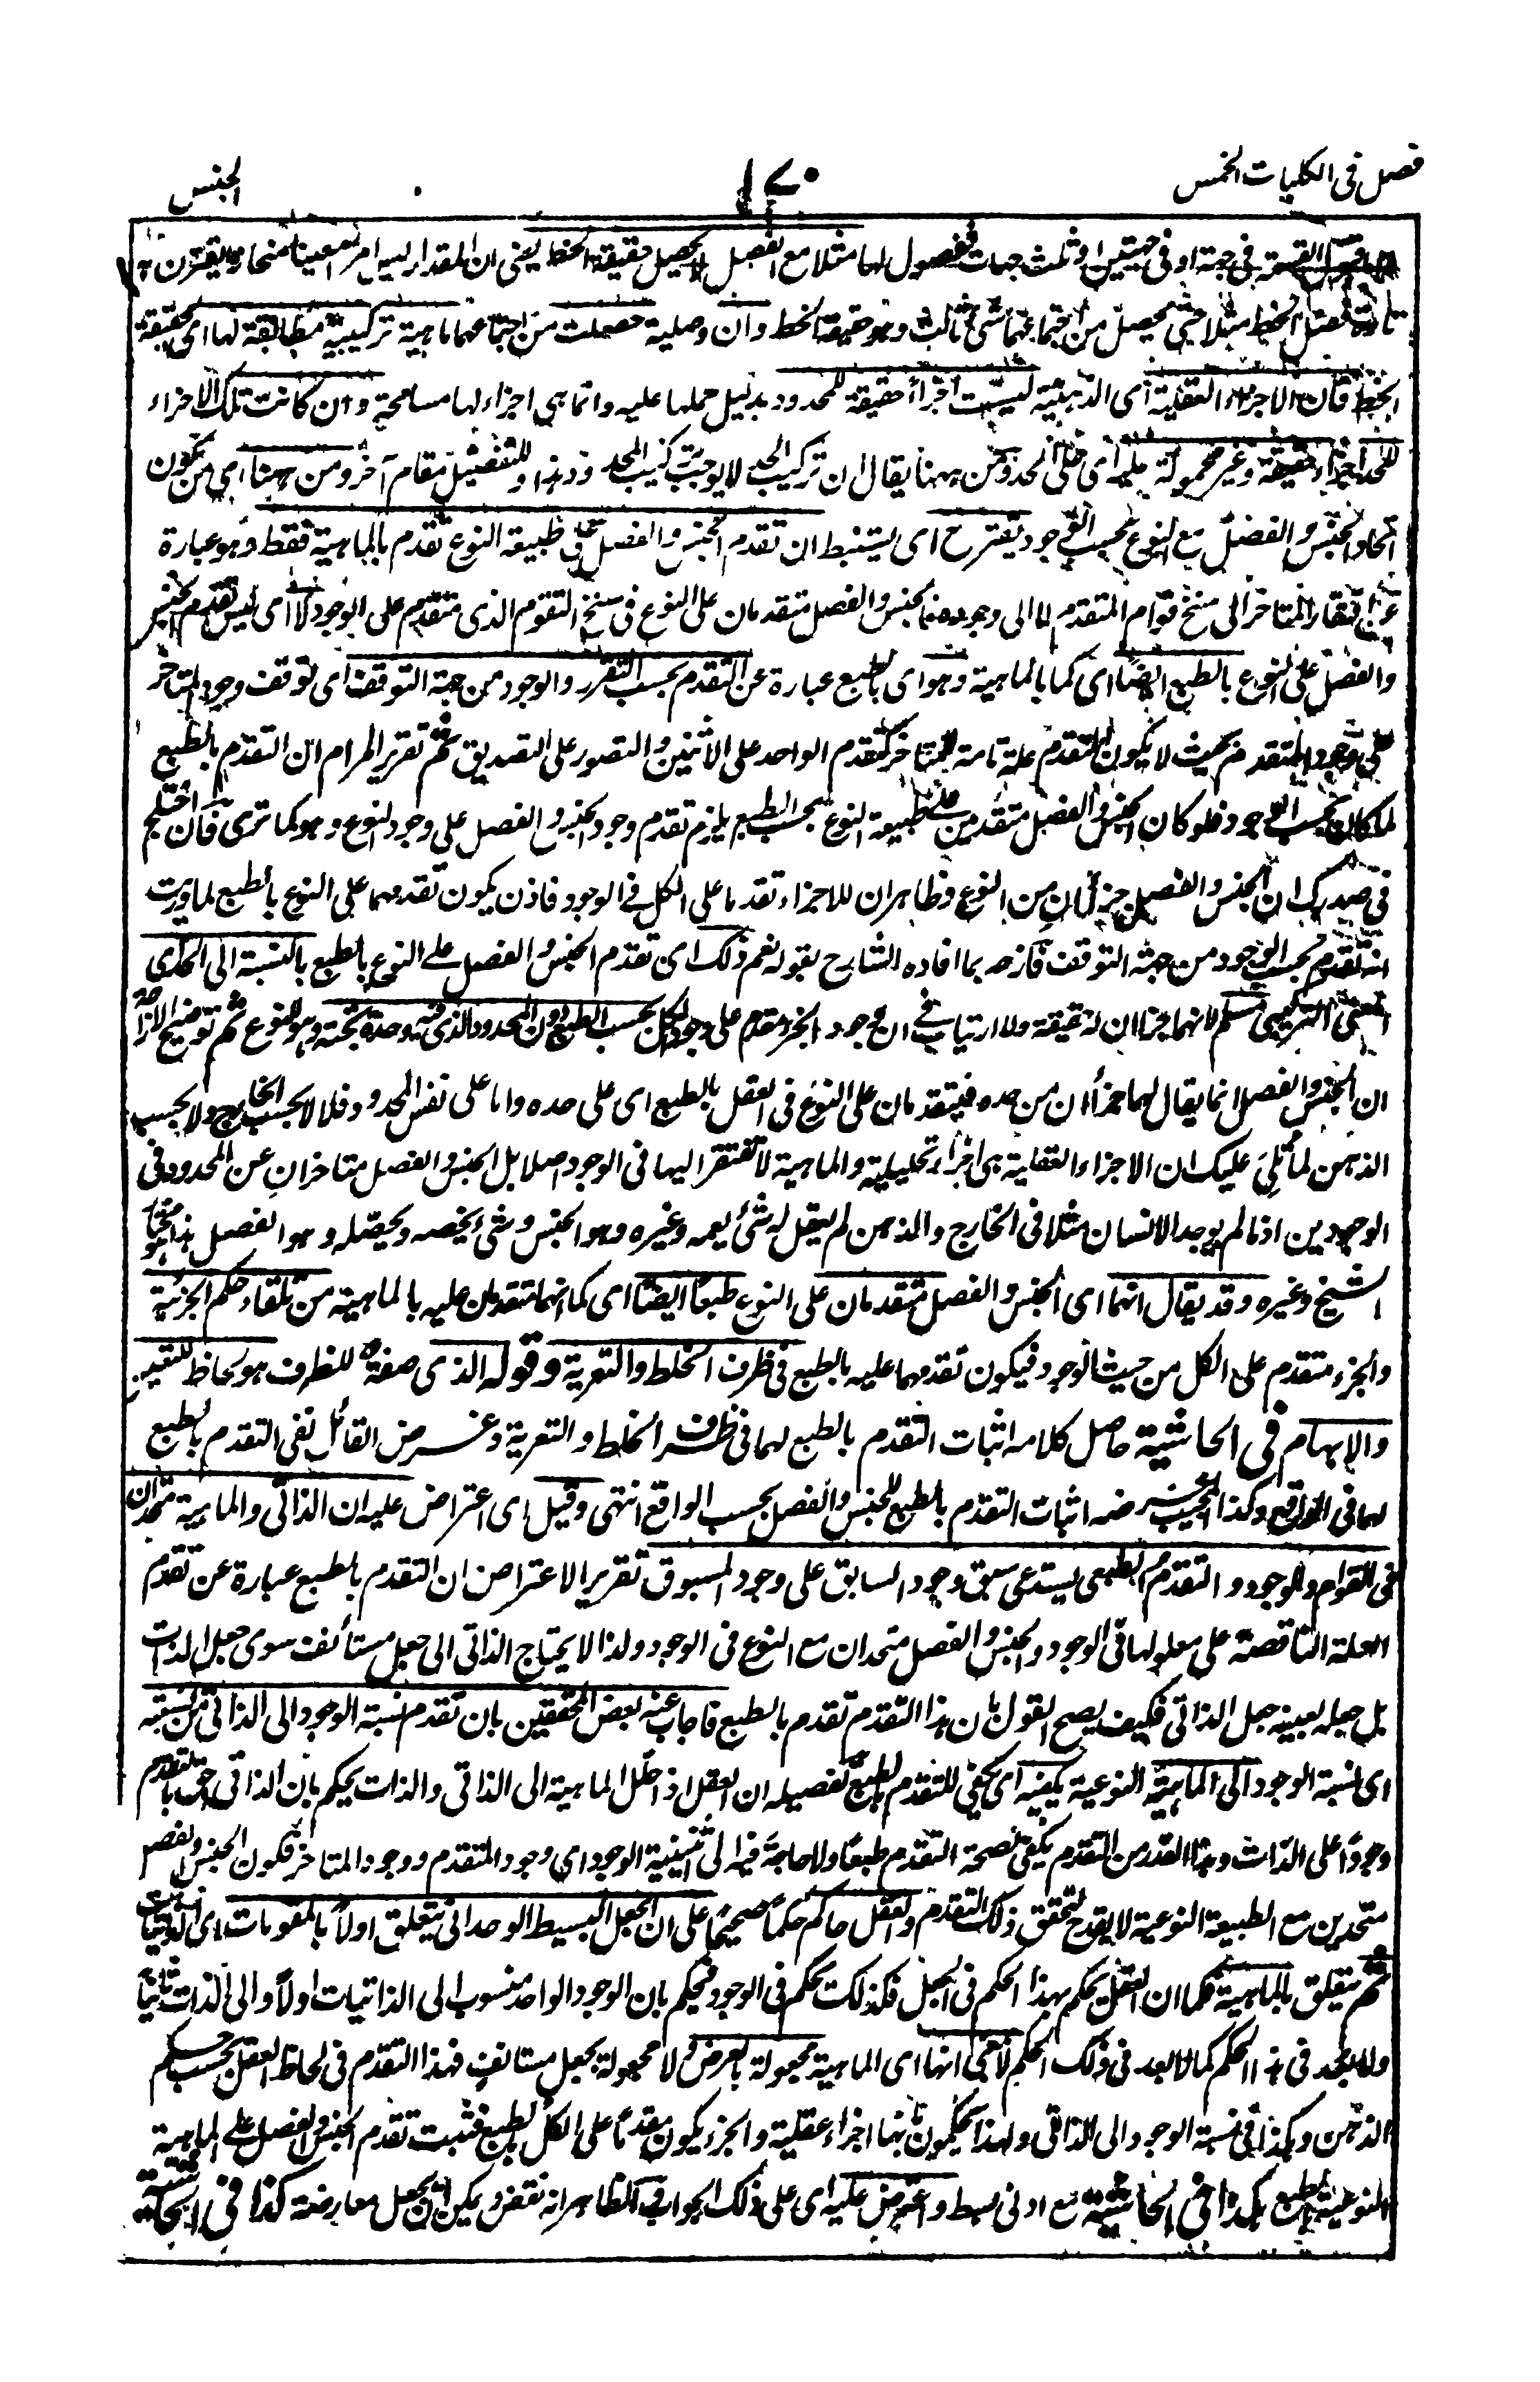 فصل فى الكليات الخمس
١٧٠
الجنس
القسمة فى جهة او فى جهتين او ثلث جهات ففصول لها مثلا مع الفصل لا يحصل حقيقة الخط يعنى ان المقدار ليس امرا معينا منحازا يقترن
تارة بفصل الخط مثلا حتى يحصل من اجتماعهما شئ ثالث وهو حقيقة الخط وان وصلية حصلت من اجتماعهما ماهية تركيبية مطابقة لها اى لحقيقة
الخط فان الاجزاء العقلية اى الذهنية ليست اجزاء حقيقة للمحدود بدليل حملها عليه وانما هى اجزاء لها مسامحة وان كانت تلك الاجزاء
للحد اجزاء حقيقة وغير محمولة عليه اى على الحد ومن ههنا يقال ان تركيب الحد لا يوجب تركيب المحدود هذا وللتفصيل مقام آخر ومن ههنا اى من كون
اتحاد الجنس والفصل مع النوع بحسب الوجود يقترح اى يستنبط ان تقدم الجنس والفصل على طبيعة النوع تقدم بالماهية فقط وهو عبارة
عن افتقار المتاخر الى سنخ قوام المتقدم لا الى وجوده فالجنس والفصل متقدمان على النوع فى سنخ التقوم الذى متقدم على الوجود لا اى ليس تقدم الجنس
والفصل على النوع بالطبع ايضا اى كما بالماهية وهو اى بالطبع عبارة عن التقدم بحسب التقرر والوجود من جهة التوقف اى توقف وجود المتاخر
على وجود المتقدم بحيث لا يكون المتقدم علة تامة للمتاخر كتقدم الواحد على الاثنين والتصور على التصديق ثم تقرير المرام ان التقدم بالطبع
لما كان بحسب الوجود فلو كان الجنس والفصل متقدمين على طبيعة النوع بحسب الطبع يلزم تقدم وجود الجنس والفصل على وجود النوع وهو كما ترى فان اختلج
فى صدرك ان الجنس والفصل جزآن من النوع وظاهر ان للاجزاء تقدما على الكل فى الوجود فاذن يكون تقدمهما على النوع بالطبع لما دريت
انه تقدم بحسب الوجود من جهة التوقف فازحه بما افاده الشارح بقوله نعم ذلك اى تقدم الجنس والفصل على النوع بالطبع بالنسبة الى الحد اى
المعنى التركيبى مسلم لانهما جزءان له حقيقة ولا ارتياب فى ان وجود الجزء مقدم على وجود الكل بحسب الطبع دون المحدود الذى فيه وحدة بحتة وهو النوع ثم توضيح الازاحة
ان الجنس والفصل انما يقال لهما جزءان من حده فيتقدمان على النوع فى العقل بالطبع اى على حده واما على نفس المحدود فلا لا بحسب الخارج ولا بحسب
الذهن لما تُلِىَ عليك ان الاجزاء العقلية هى اجزاء تحليلية والماهية لا تفتقر اليها فى الوجود اصلا بل الجنس والفصل متاخران عن المحدود فى
الوجودين اذ ما لم يوجد الانسان مثلا فى الخارج والذهن لم يعقل له شئ يعمه وغيره وهو الجنس وشئ يخصه ويحصّله وهو الفصل هذا مختار
الشيخ وغيره وقد يقال انهما اى الجنس والفصل متقدمان على النوع طبعًا ايضًا اى كما انهما متقدمان عليه بالماهية من تلقاء حكم الجزئية
والجزء متقدم على الكل من حيث الوجود فيكون تقدمهما عليه بالطبع فى ظرف الخلط والتعرية وقوله الذى صفة للظرف هو لحاظ التعيين
والابهام فى الحاشية حاصل كلامه اثبات التقدم بالطبع لهما فى ظرف الخلط والتعرية وغرض القائل نفى التقدم بالطبع
لهما فى الواقع وكذا المجيب غرضه اثبات التقدم بالطبع للجنس والفصل بحسب الواقع انتهى وقيل اى اعتراض عليه ان الذاتى والماهية متحدان
فى القوام والوجود والتقدم الطبعى يستدعى سبق وجود السابق على وجود المسبوق تقرير الاعتراض ان التقدم بالطبع عبارة عن تقدم
العلة الناقصة على معلولها فى الوجود والجنس والفصل متحدان مع النوع فى الوجود ولذا لا يحتاج الذاتى الى جعل مستأنف سوى جعل الذات
بل جعله بعينه جعل الذاتى فكيف يصح القول بان هذا التقدم تقدم بالطبع فاجاب عنه بعض المحققين بان تقدم نسبة الوجود الى الذاتى من نسبته
اى نسبة الوجود الى الماهية النوعية يكفيه اى يكفى للتقدم بالطبع تفصيله ان العقل اذ احلل الماهية الى الذاتى والذات يحكم بان الذاتى احق بالتقدم
وجودًا على الذات وهذا القدر من التقدم يكفى لصحة التقدم طبعًا ولا حاجة فيه الى اثنينية الوجود اى وجود المتقدم ووجود المتاخر فكون الجنس والفصل
متحدين مع الطبيعة النوعية لا يقدح لتحقق ذلك التقدم والعقل حاكم حكمًا صحيحًا على ان الجعل البسيط الوحدانى يتعلق اولًا بالمقومات اى الذاتيات
ثم يتعلق بالماهية فكما ان العقل يحكم بهذا الحكم فى الجعل فكذلك يحكم فى الوجود فيحكم بان الوجود الواحد منسوب الى الذاتيات اولًا والى الذات ثانيًا
ولا بعد فى هذا الحكم كما لا بعد فى ذلك الحكم لا انها اى الماهية مجعولة بالعرض لا مجعولة بجعل مستانف فهذا التقدم فى لحاظ العقل بحسب حكم
الذهن وهكذا فى نسبة الوجود الى الذاتى ولهذا يحكمون بانهما اجزاء عقلية والجزء يكون مقدمًا على الكل بالطبع فثبت تقدم الجنس والفصل على الماهية
النوعية بالطبع هكذا فى الحاشية مع ادنى بسط واعترض عليه اى على ذلك الجواب فى الظاهر انه نقض ويمكن ان يجعل معارضة كذا فى الحاشية